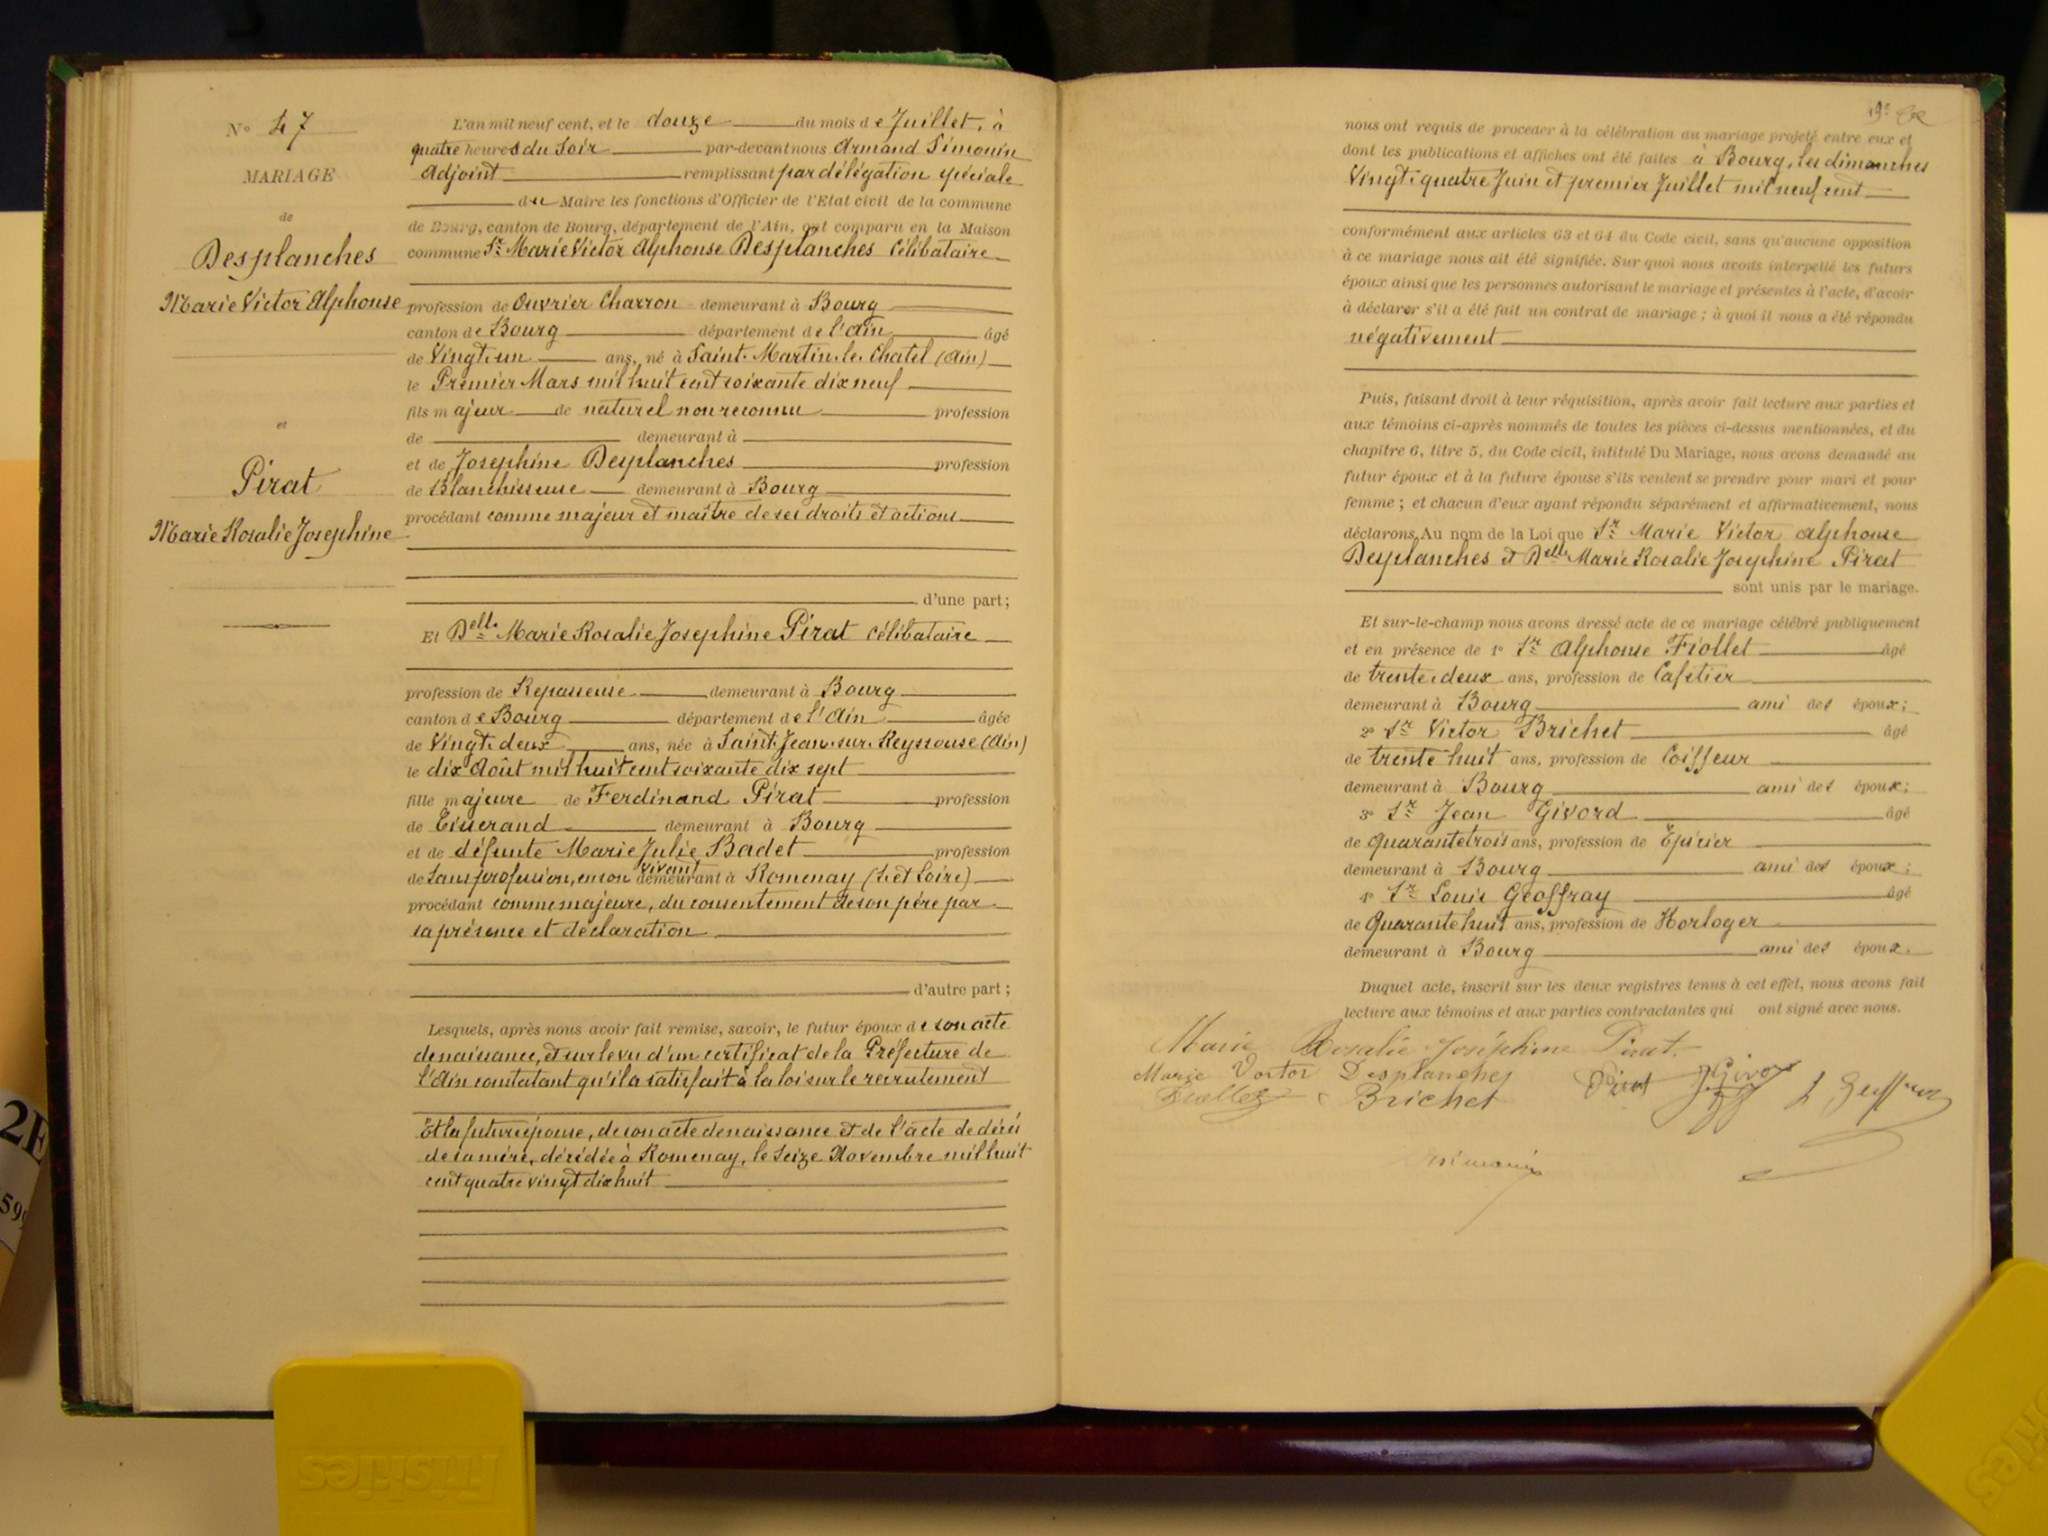 N° 47
MARIAGE
de
Desplanches
Marie Victor Alphonse
et
Pirat
Marie Rosalie Josephine
L'an mil neuf cent, et le douze du mois de Juillet, à
quatre heures du Soir par-devant nous Armand Simonin
Adjoint remplissant par délégation spéciale
du Maire les fonctions d'Officier de l'Etat civil de la commune
de Bourg, canton de Bourg, département de l'Ain, ont comparu en la Maison
commune Sr Marie Victor Alphonse Desplanches Célibataire
profession de Ouvrier Charron demeurant à Bourg
canton de Bourg département de l'Ain âgé
de Vingt-un ans, né à Saint-Martin-le-Chatel (Ain)
le Premier Mars mil huit cent soixante dix neuf
fils majeur de naturel non reconnu profession
de demeurant à
et de Josephine Desplanches profession
de Blanchisseuse demeurant à Bourg
procédant comme majeur et maître de ses droits et actions
d'une part;
Et Delle Marie Rosalie Josephine Pirat Célibataire
profession de Repasseuse demeurant à Bourg
canton de Bourg département de l'Ain âgée
de Vingt-deux ans, née à Saint-Jean-sur-Reyssouse (Ain)
le dix Août mil huit cent soixante dix sept
fille majeure de Ferdinand Pirat profession
de Tisserand demeurant à Bourg
et de défunte Marie Julie Badet profession
de Sans profession, en son vivant demeurant à Romenay (S. et Loire)
procédant comme majeure, du consentement de son père par
sa présence et déclaration
d'autre part;
Lesquels, après nous avoir fait remise, savoir, le futur époux de son acte
de naissance, et sur le vu d'un certificat de la Préfecture de
l'Ain constatant qu'il a satisfait à la loi sur le recrutement
Et la future épouse, de son acte de naissance et de l'acte de décès
de sa mère, décédée à Romenay, le Seize Novembre mil huit
cent quatre vingt dix huit
nous ont requis de procéder à la célébration du mariage projeté entre eux et
dont les publications et affiches ont été faites à Bourg, les dimanches
Vingt-quatre Juin et premier Juillet mil neuf cent
conformément aux articles 63 et 64 du Code civil, sans qu'aucune opposition
à ce mariage nous ait été signifiée. Sur quoi nous avons interpellé les futurs
époux ainsi que les personnes autorisant le mariage et présentes à l'acte, d'avoir
à déclarer s'il a été fait un contrat de mariage; à quoi il nous a été répondu
négativement
Puis, faisant droit à leur réquisition, après avoir fait lecture aux parties et
aux témoins ci-après nommés de toutes les pièces ci-dessus mentionnées, et du
chapitre 6, titre 5, du Code civil, intitulé Du Mariage, nous avons demandé au
futur époux et à la future épouse s'ils veulent se prendre pour mari et pour
femme; et chacun d'eux ayant répondu séparément et affirmativement, nous
déclarons, Au nom de la Loi que Sr Marie Victor Alphonse
Desplanches et Delle Marie Rosalie Josephine Pirat
sont unis par le mariage.
Et sur-le-champ nous avons dressé acte de ce mariage célébré publiquement
et en présence de 1° Sr Alphonse Fiollet âgé
de trente-deux ans, profession de Cafetier
demeurant à Bourg ami des époux;
2° Sr Victor Brichet âgé
de trente huit ans, profession de Coiffeur
demeurant à Bourg ami des époux;
3° Sr Jean Givord âgé
de Quarante trois ans, profession de Epicier
demeurant à Bourg ami des époux;
4° Sr Louis Geoffray âgé
de Quarante huit ans, profession de Horloger
demeurant à Bourg ami des époux.
Duquel acte, inscrit sur les deux registres tenus à cet effet, nous avons fait
lecture aux témoins et aux parties contractantes qui ont signé avec nous.
Marie Rosalie Joséphine Pirat
Marie Victor Desplanches Pirat J Givord L Geoffray
Fiollet Brichet
Simonin
Triskies
2E